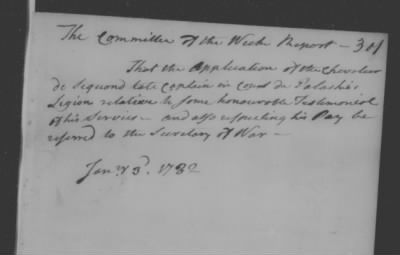 The Committee of the Week Report — 301
That the Application of the Chevalier
de Segond late Captain in Count de Polaskis
Legion relative to some honourable Testimonial
of his Services — and also respecting his Pay be
referred to the Secretary of War —
Jany 3d. 1782